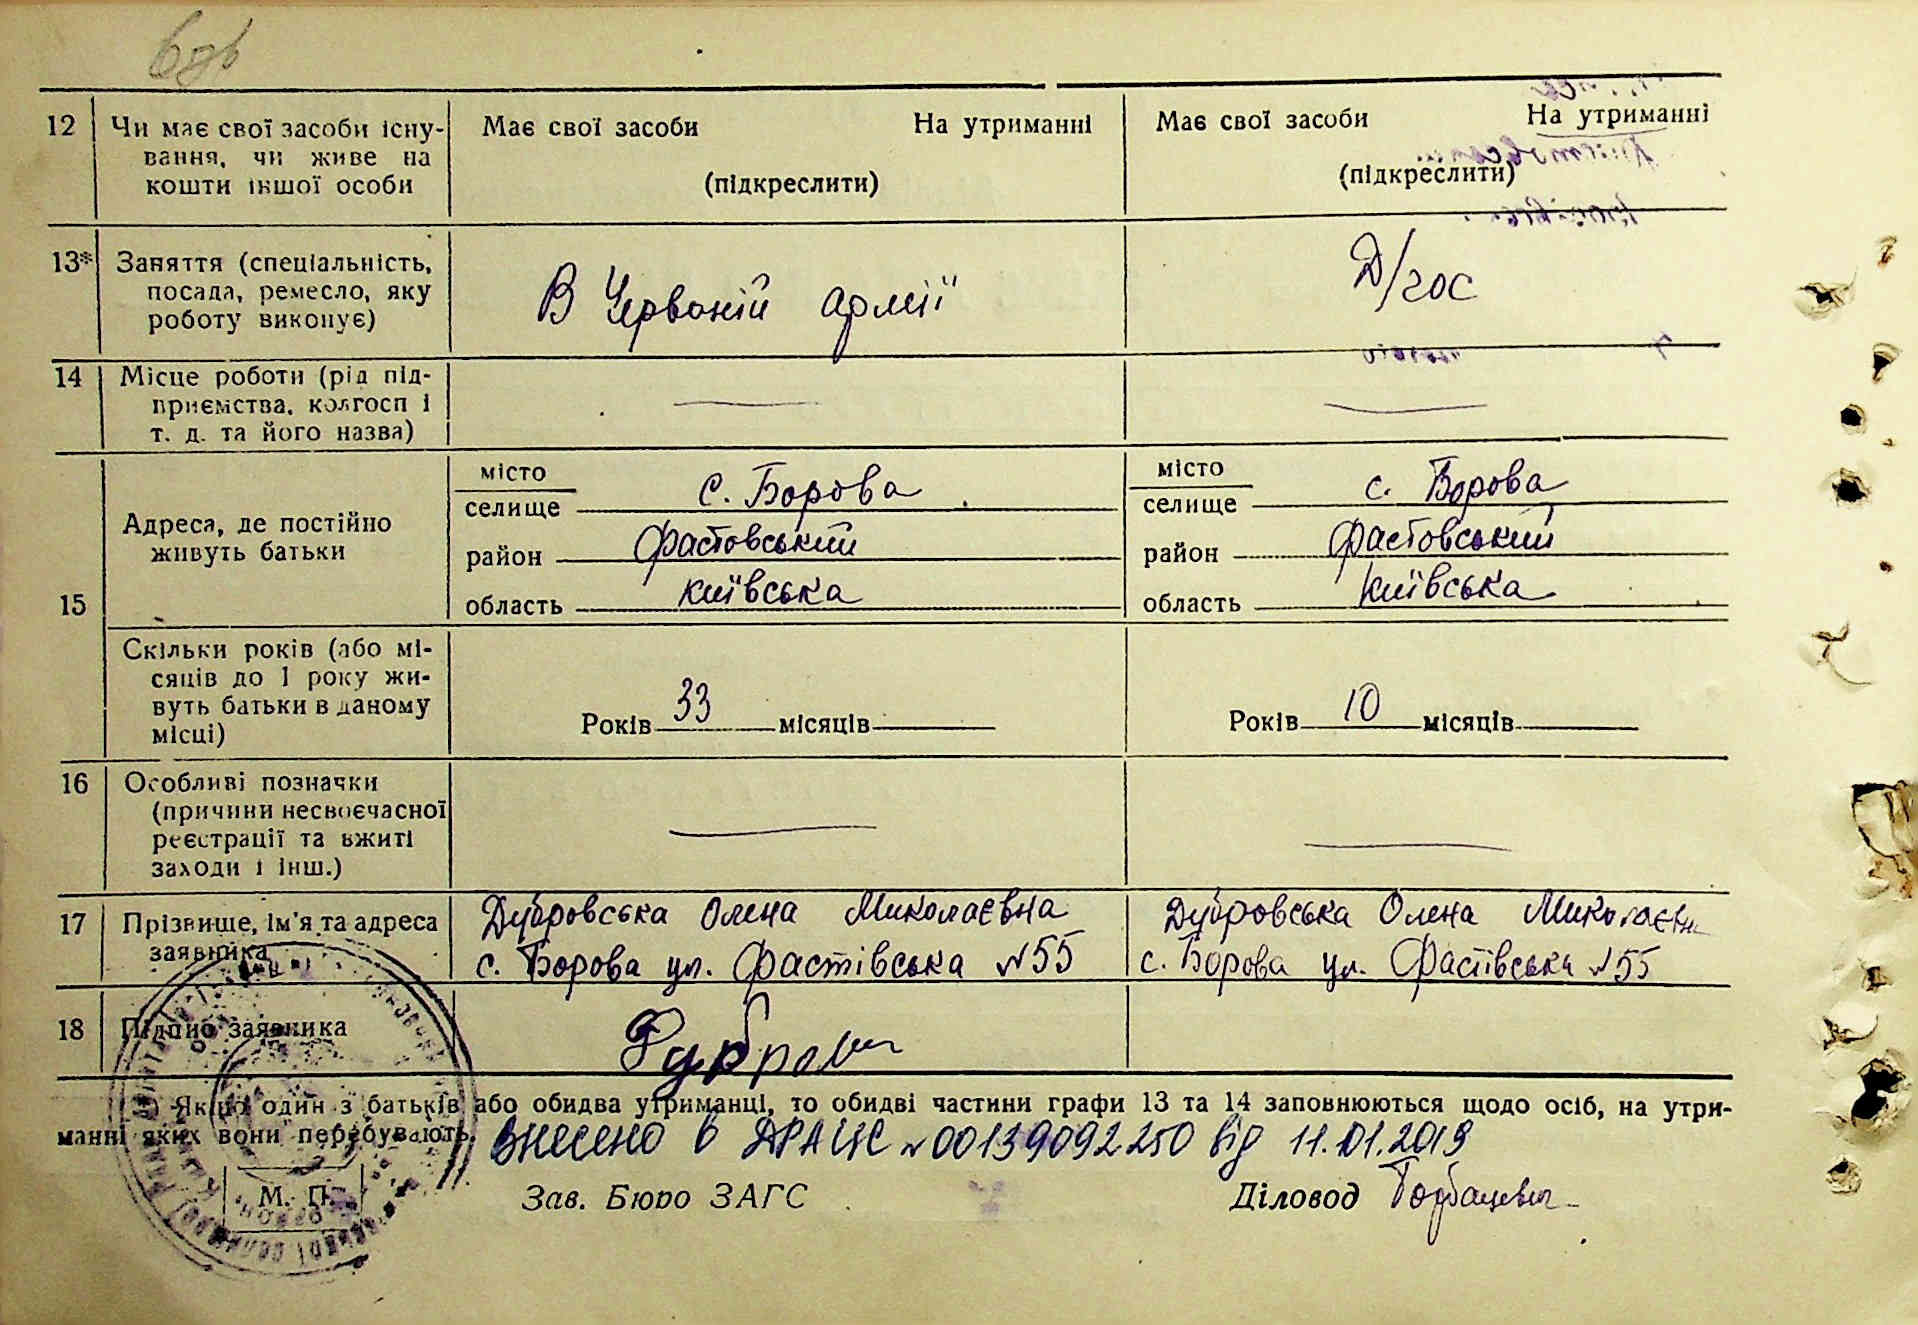 12
Чи має свої засоби існу-
вання, чи живе на
кошти іншої особи
Має свої засоби На утриманні
(підкреслити)
Має свої засоби На утриманні
(підкреслити)
13*
Заняття (спеціальність,
посада, ремесло, яку
роботу виконує)
В Червоній армії
Д/гос
14
Місце роботи (рід під-
приємства, колгосп і
т. д. та його назва)
15
Адреса, де постійно
живуть батьки
місто
селище с. Борова
район Фастовський
область Київська
місто
селище с. Борова
район Фастовський
область Київська
Скільки років (або мі-
сяців до 1 року жи-
вуть батьки в даному
місці)
Років 33 місяців
Років 10 місяців
16
Особливі позначки
(причини несвоєчасної
реєстрації та вжиті
заходи і інш.)
17
Прізвище, ім'я та адреса
заявника
Дубровська Олена Миколаєвна
с. Борова ул. Фастівська №55
Дубровська Олена Миколаєвна
с. Борова ул. Фастівська №55
18
Підпис заявника
*) Якщо один з батьків або обидва утриманці, то обидві частини графи 13 та 14 заповнюються щодо осіб, на утри-
манні яких вони перебувають.
Внесено в ДРАЦС №00139092250 від 11.01.2019
М. П.
Зав. Бюро ЗАГС
Діловод Горбацевич